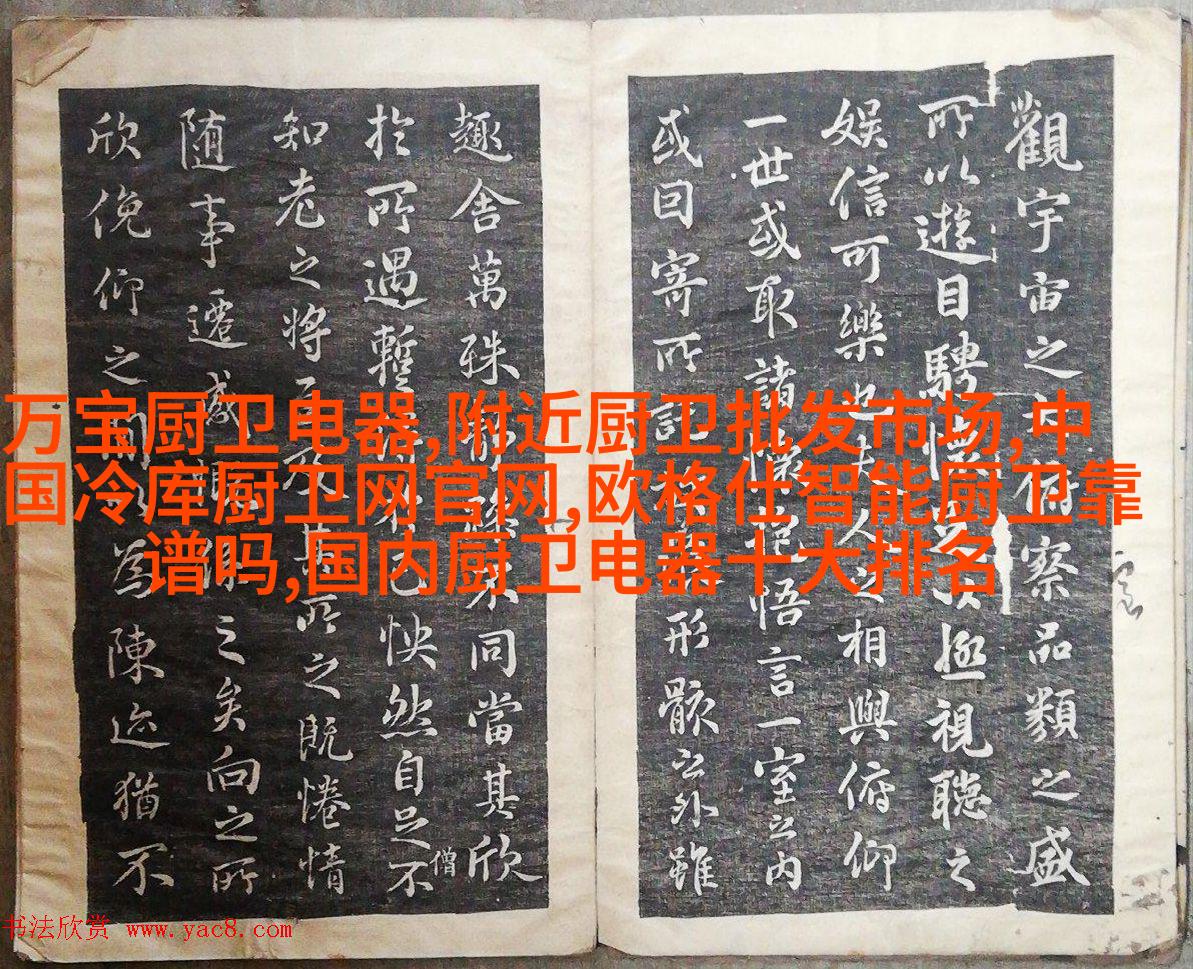 觀宇宙之俯察品類之盛
所以遊目騁懷以極視聽之
娛信可樂也夫人之相與俯仰
一世或取諸懷抱悟言一室之內
或因寄所託形骸之外雖
趣舍萬殊不同當其欣
於所遇暫得己怏然自足不
僧
知老之將至及其所之既惓情
随事遷感慨係之矣向之所
欣俛仰之間以為陳迹猶不
万宝厨卫电器,附近厨卫批发市场,中
国冷库厨卫网官网,欧格仕智能厨卫靠
谱吗,国内厨卫电器十大排名
书法欣赏 www.yac8.com